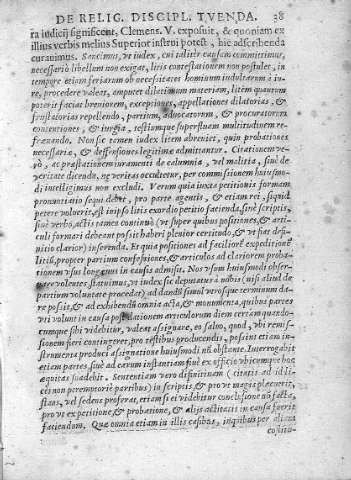 DE RELIG. DISCIPL. TVENDA. 38
ra iudicij significent, Clemens. V. exposuit, & quoniam ex
illius verbis melius Superior instrui potest, hic adscribenda
curauimus. Sancimus, vt iudex, cui taliter causam committimus,
necessariò libellum non exigat, litis contestationem non postulet, in
tempore etiam feriarum ob necessitates hominum indultarum à iu-
re, procedere valeat, amputet dilationum materiam, litem quantum
poterit faciat breuiorem, exceptiones, appellationes dilatorias, &
frustratorias repellendo, partium, aduocatorum, & procuratorum
contentiones, & iurgia, testiumque superfluam multitudinem re-
frænando. Non sic tamen iudex litem abreuiet, quin probationes
necessariæ, & deffensiones legitimæ admittantur. Citationem ve-
rò, ac præstationem iuramenti de calumnia, vel malitia, siue de
veritate dicenda, ne veritas occultetur, per commissionem huiusmo-
di intelligimus non excludi. Verum quia iuxta petitionis formam
pronuntiatio sequi debet, pro parte agentis, & etiam rei, siquid
petere voluerit, est in ipso litis exordio petitio facienda, siue scriptis,
siue verbo, actis tamen continuò (vt super quibus positiones, & arti-
culi formari debeant possit haberi plenior certitudo, & vt fiat defi-
nitio clarior) inserenda. Et quia positiones ad faciliorem expeditionem
litium, propter partium confessiones, & articulos ad clariorem proba-
tionem vsus longæuus in causis admisit. Nos vsum huiusmodi obser-
uare volentes statuimus, vt iudex sic deputatus à nobis (nisi aliud de
partium voluntate procedat) ad dandum simul vtrosque terminum da-
re possit, & ad exhibendum omnia acta, & monumenta, quibus partes
vti volunt in causa post dationem articulorum diem certam quando-
cumque sibi videbitur, valeat assignare, eo saluo, quod, vbi remis-
sionem fieri contingeret, pro testibus producendis, possint etiam in-
strumenta produci assignatione huiusmodi non obstante. Interrogabit
etiam partes, siue ad earum instantiam siue ex officio vbicumque hoc
æquitas suadebit. Sententiam vero difinitiuam (citatis ad id li-
cet non peremptoriè partibus) in scriptis, & prout magis placuerit,
stans, vel sedens proferat, etiam si ei videbitur conclusione non facta,
prout ex petitione, & probatione, & aliis actitatis in causa fuerit
faciendum. Quæ omnia etiam in illis casibus, in quibus per aliam
constitu-